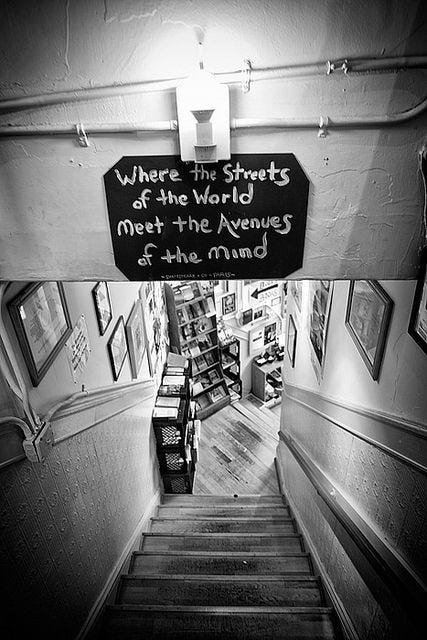 Where the Streets
of the World
meet the Avenues
of the mind